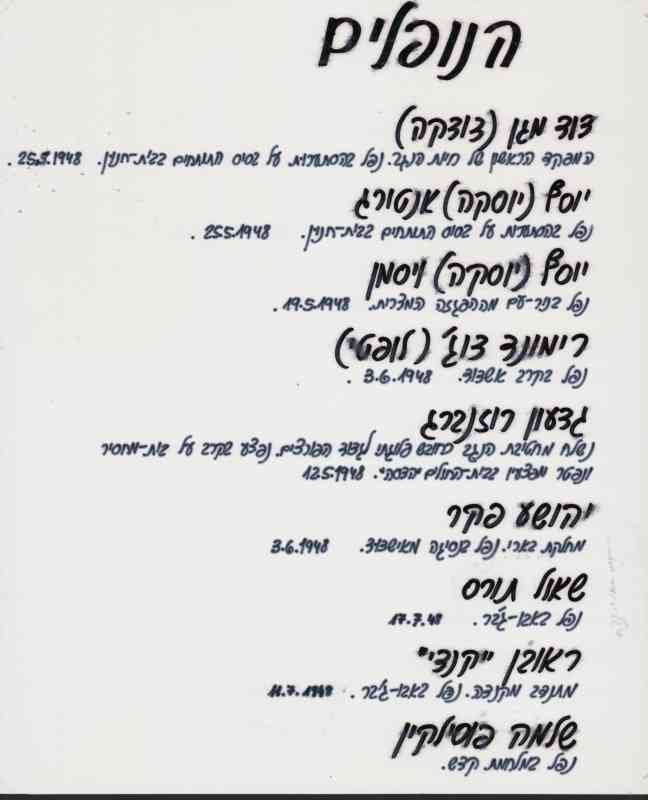 הנופלים
דוד מגן (דודקה)
המפקד הראשון של חיות הנגב. נפל בהסתערות על בסיס התותחים בבית-חנון. 25.5.1948.
יוסף (יוסקה) אנטורג
נפל בהסתערות על בסיס התותחים בבית-חנון. 25.5.1948.
יוסף (יוסקה) ויסמן
נפל בניר-עם מההפגזה המצרית. 19.5.1948.
רימונד צוג' (לופטי)
נפל בקרב אשדוד. 3.6.1948.
גדעון רוזנברג
נשלח מחטיבת הנגב כחובש פלוגתי לגדוד הפורצים. נפצע בקרב על בית-מחסיר
ונפטר מפצעיו בבית-החולים "הדסה". 12.5.1948
יהושע פקר
מחלקת בארי. נפל בנסיגה מאישדוד. 3.6.1948
שאול תורס
נפל באבו-ג'בר. 17.7.48
ראובן "קנדי"
מתנדב מקנדה. נפל באבו-ג'בר. 11.7.1948
שלמה פוסילקין
נפל במלחמת קדש.